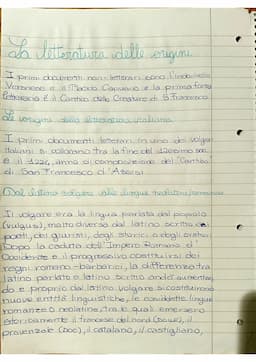 La letteratura delle origini
I primi documenti non letterari sono l'indovinello
Veronese e il Placito Capuano e la prima fonte
letteraria è il Cantico delle Creature di S. Francesco
Le origini della letteratura italiana
I primi documenti letterari in uno dei volgari
italiani si collocano tra la fine del
e il 1224, anno di composizione del "Cantico
di San Francesco d'Assisi
Dal latino volgare alle lingue
Il volgare era la lingua parlata dal popolo
(vulgus), molto diversa dal latino scritto dei
poeti, dei giuristi, degli storici e degli oratori.
Dopo la caduta dell'Impero Romano d'
Occidente e il progressivo costituirsi dei
regni romano-barbarici, la differenza tra
latino parlato e latino scritto andò aumentan
do e proprio dal latino volgare si costituirono
nuove entità linguistiche, le cosiddette lingue
romanze o neolatine, tra le quali emersero
storicamente il francese del nord (oïl), il
provenzale (doc), il catalano, il castigliano,